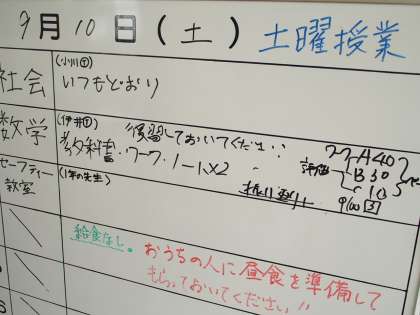 9月10日(土) 土曜授業
社会 (小川T)
いつもどおり
数学 (伊井T)
復習しておいてください!!
教科書・ワーク・ノート×2
A 40
B 30
C 10
セーフティー教室 (1年の先生)
給食なし。おうちの人に昼食を準備して
もらっておいてください!!